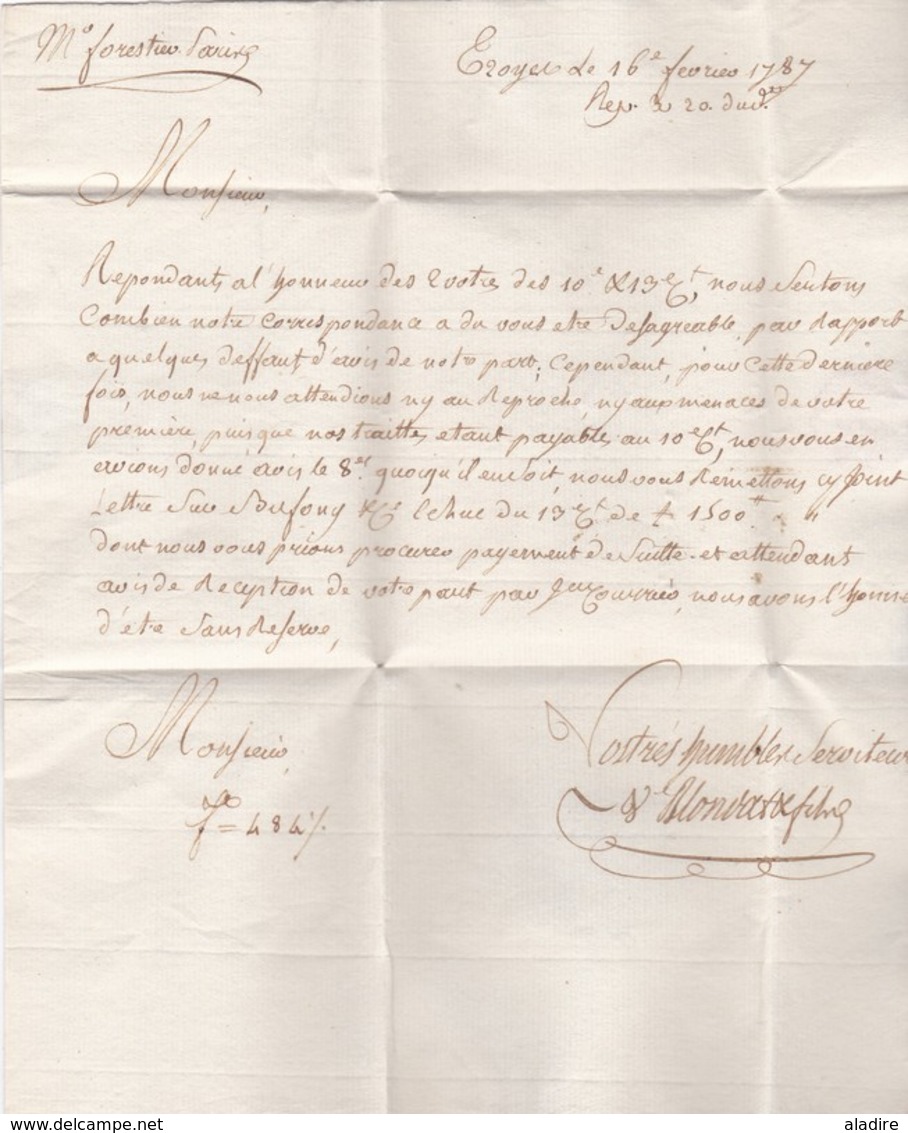 Mr. forestier Paris
Troyes Le 16e. fevrier 1787
Rep. Le 20. dud.
Monsieur,
Repondants a l'honneur des 2 votres des 10e. & 13 Ct, nous Sentons
Combien notre Correspondance a du vous etre Desagreable, par Rapport
a quelques deffaut d'avis de notre part; Cependant, pour Cette derniere
fois, nous ne nous attendions ny au Reproche, ny aux menaces de votre
premiere, puis que nos traittes etant payables au 10 Ct, nous vous en
avions donné avis le 8e. quoiqu'il en Soit, nous vous Remettons cy Joint
Lettre Sur & Ce. Echue du 13 Ct. de £ 1500tt. "
dont nous vous prions procurer payement de Suitte et attendant
avis de Reception de votre part par 1er Courrier, nous avons l'honne
d'être Sans Reserve,
Monsieur,
fo = 484 /.
Vos trés humbles Serviteur
Ve. & fils
aladire